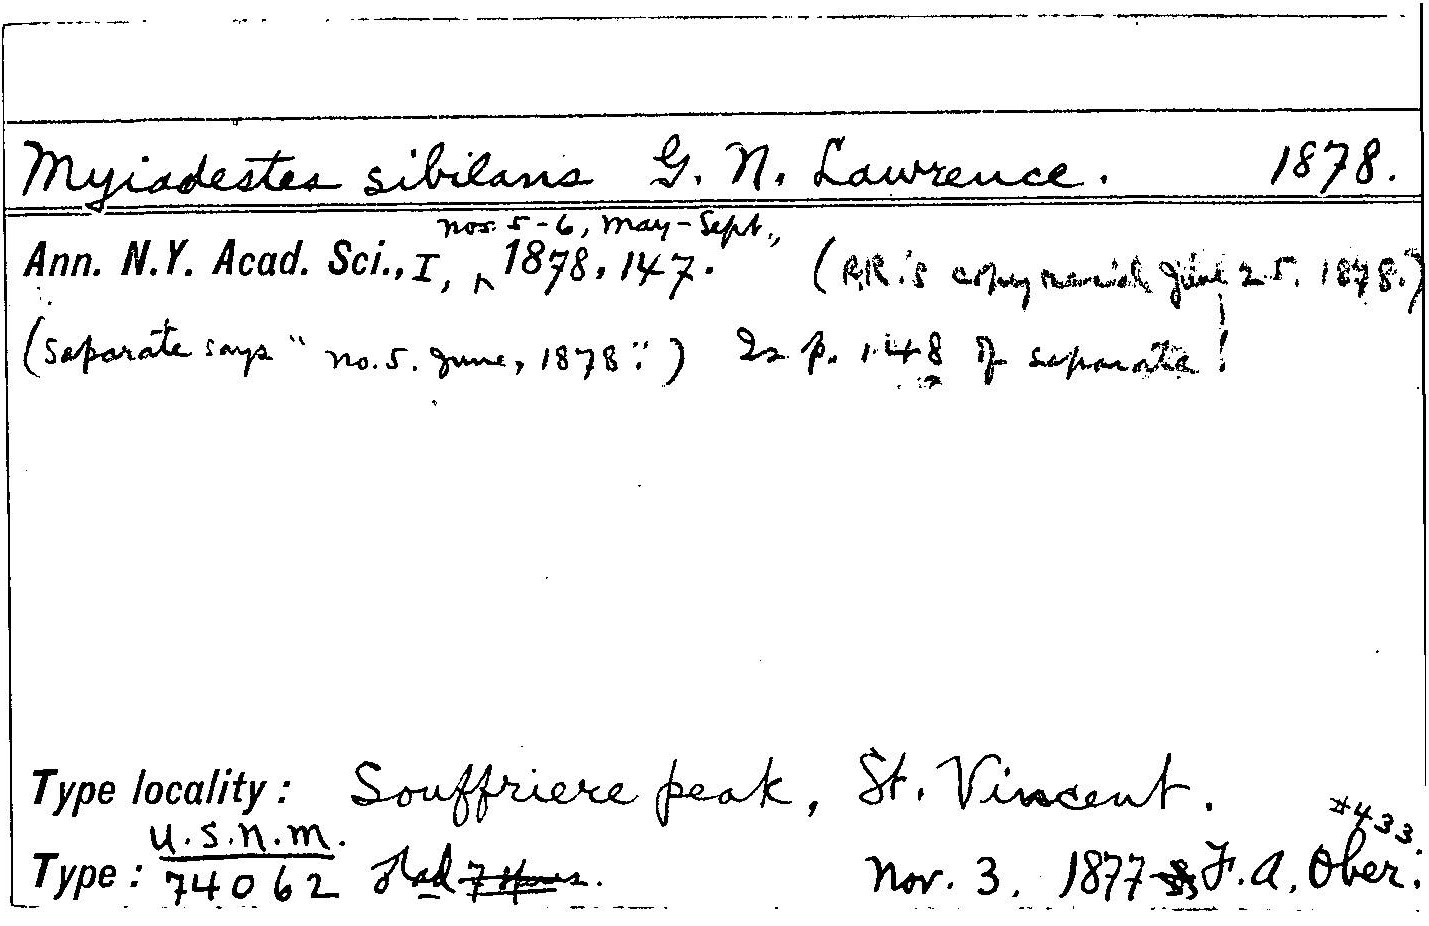 Myiadestes sibilans G. N. Lawrence. 1878.
nos. 5-6, May-Sept.,
Ann. N.Y. Acad. Sci., I, ^ 1878, 147. (RR.'s copy received June 25, 1878.)
(Separate says "no. 5. June, 1878".) Is p. 148 of separate!
Type locality: Souffriere peak, St. Vincent.
#433.
U.S.N.M.
Type: 74062 ad Nov. 3, 1877 F. A. Ober.